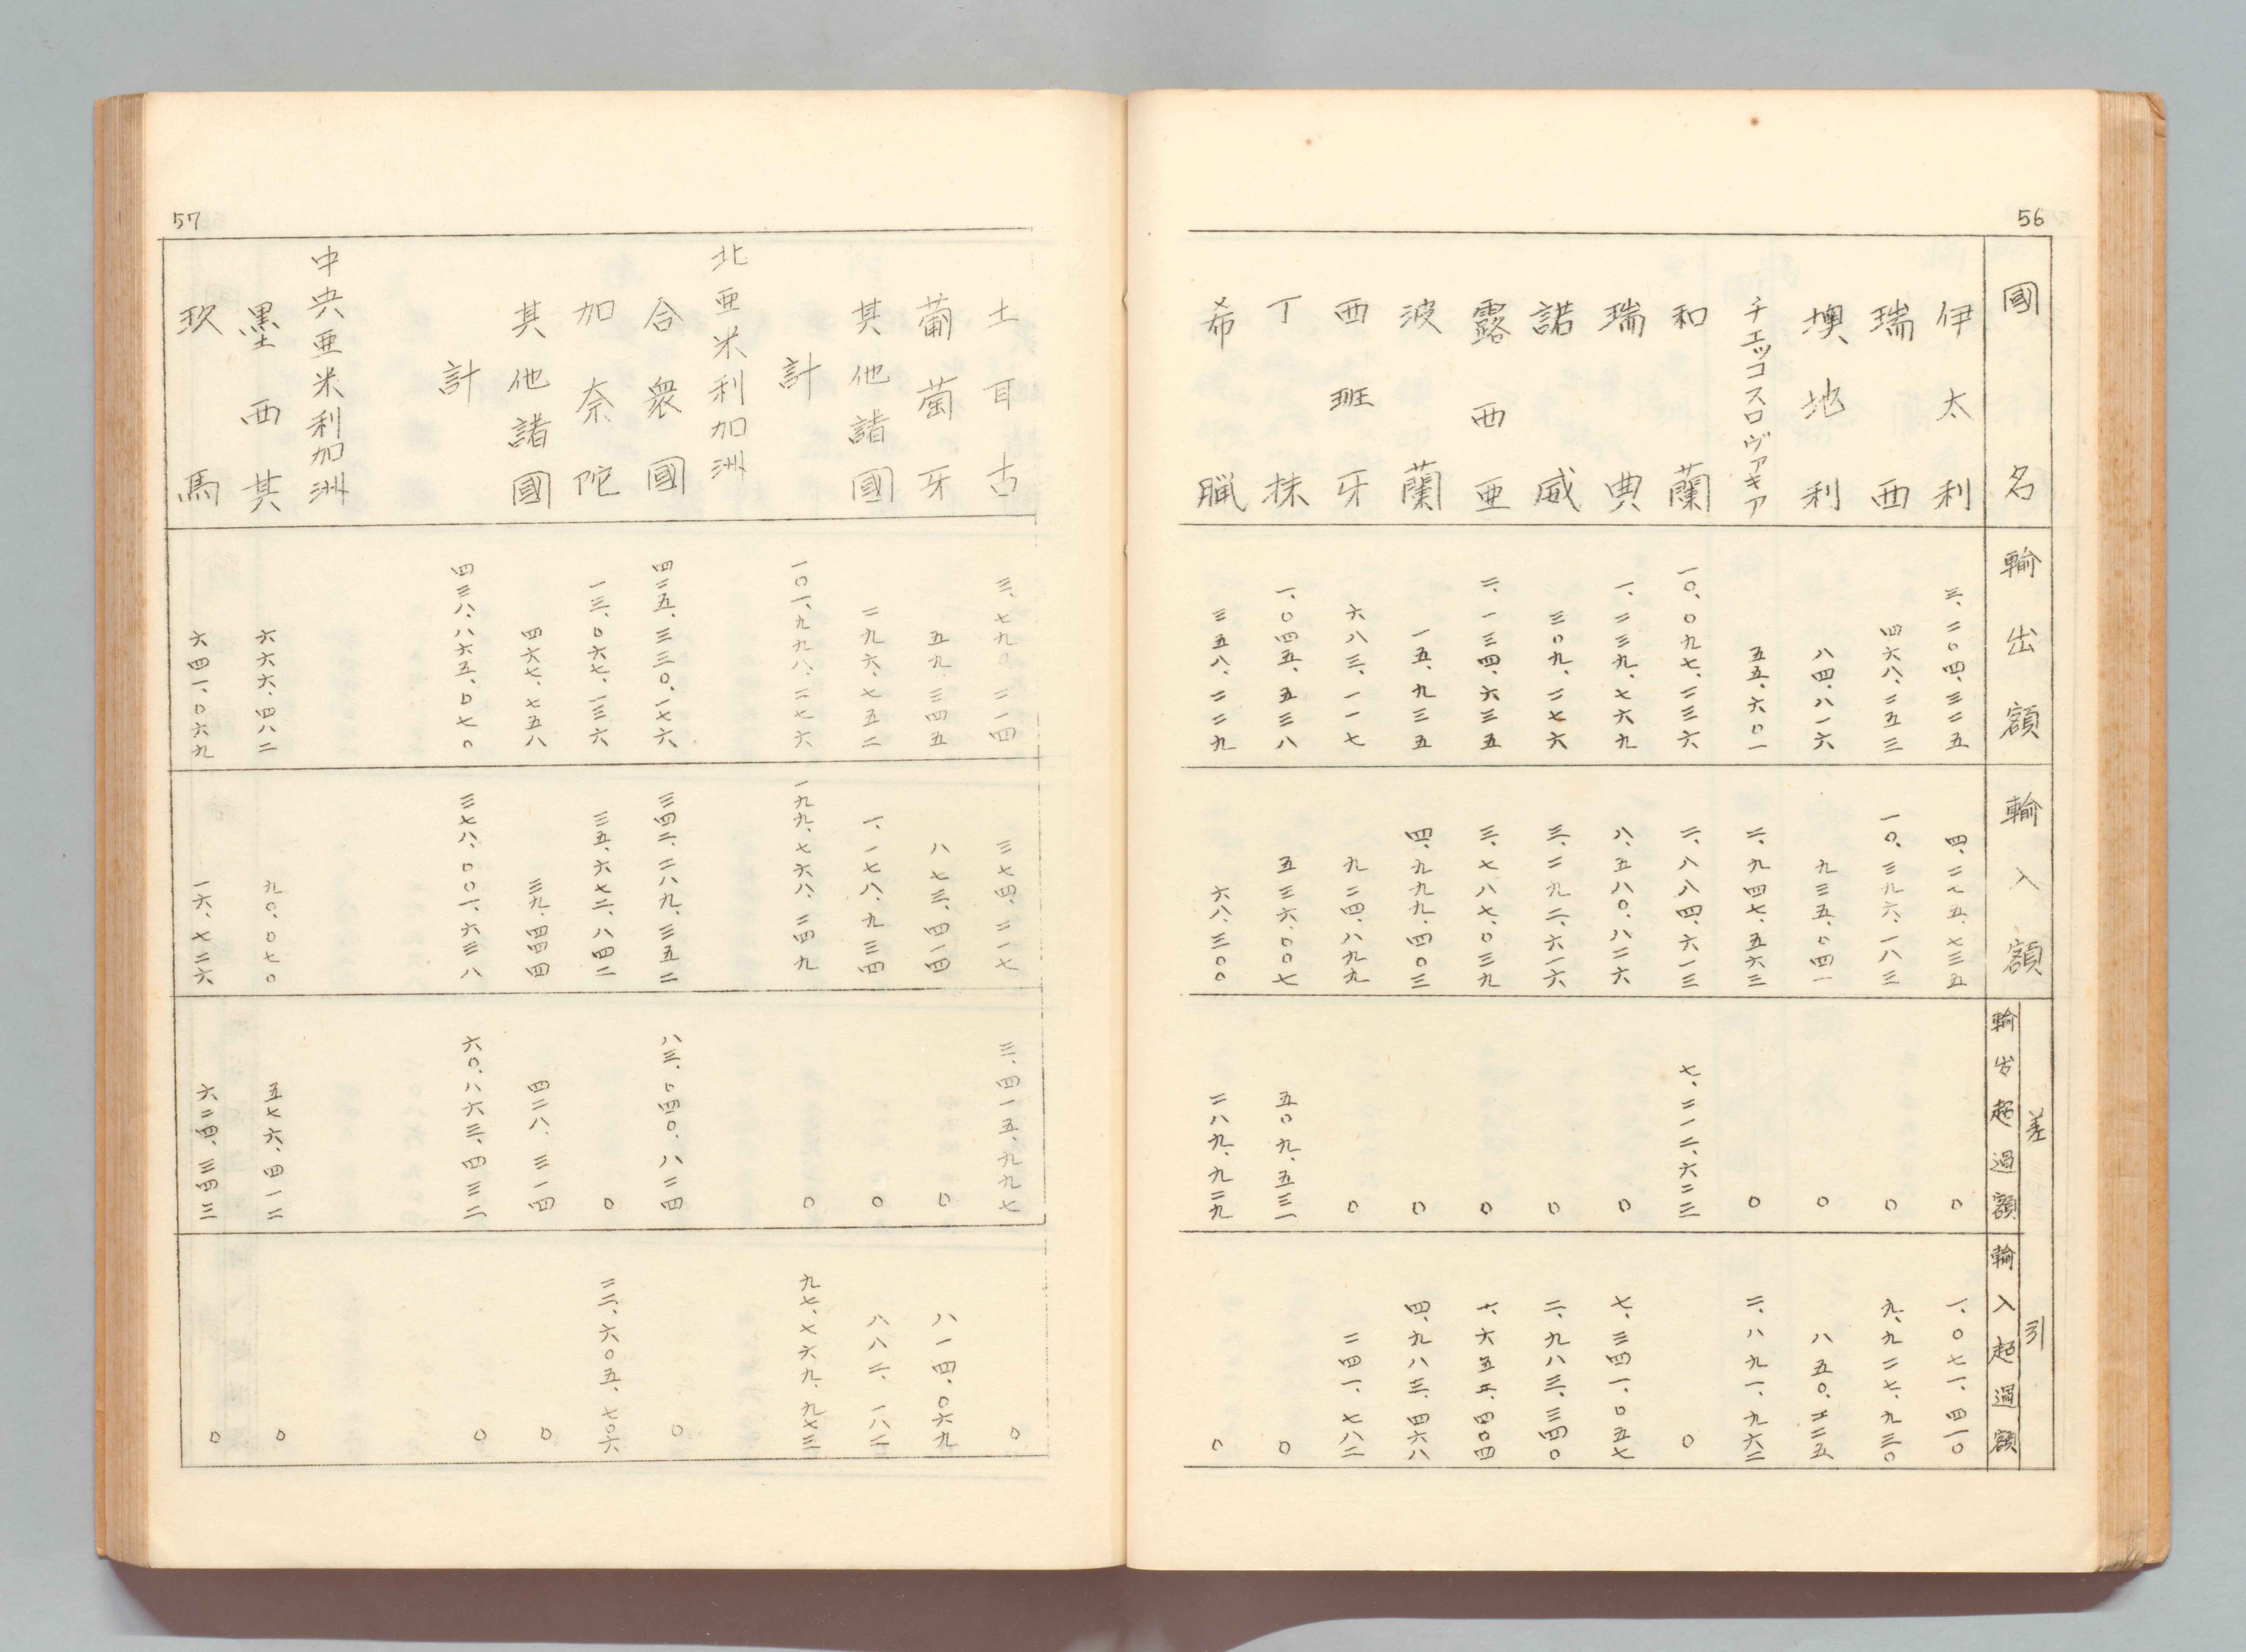 56
國名 輸出額 輸入額 差引 輸出超過額 輸入超過額
伊太利 三、二〇四、三二五 四、二七五、七三五 〇 一、〇七一、四一〇
瑞西 四六八、二五三 一〇、三九六、一八三 〇 九、九二七、九三〇
墺地利 八四、八一六 九三五、〇四一 〇 八五〇、二二五
チエッコスロヴァキア 五五、六〇一 二、九四七、五六三 〇 二、八九一、九六二
和蘭 一〇、〇九七、二三六 二、八八四、六一三 七、二一二、六二三 〇
瑞典 一、二三九、七六九 八、五八〇、八二六 〇 七、三四一、〇五七
諾威 三〇九、二七六 三、二九二、六一六 〇 二、九八三、三四〇
露西亜 二、一三四、六三五 三、七八七、〇三九 〇 一、六五二、四〇四
波蘭 一五、九三五 四、九九九、四〇三 〇 四、九八三、四六八
西班牙 六八三、一一七 九二四、八九九 〇 二四一、七八二
丁抹 一、〇四五、五三八 五三六、〇〇七 五〇九、五三一 〇
希臘 三五八、二二九 六八、三〇〇 二八九、九二九 〇
57
土耳古 三、七九〇、二一四 三七四、二一七 三、四一五、九九七 〇
葡萄牙 五九、三四五 八七三、四一四 〇 八一四、〇六九
其他諸國 二九六、七五二 一、一七八、九三四 〇 八八二、一八二
計 一〇一、九九八、二七六 一九九、七六八、二四九 〇 九七、七六九、九七三
北亜米利加洲
合衆國 四二五、三三〇、一七六 三四二、二八九、三五二 八三、〇四〇、八二四 〇
加奈陀 一三、〇六七、一三六 三五、六七二、八四二 〇 二二、六〇五、七〇六
其他諸國 四六七、七五八 三九、四四四 四二八、三一四 〇
計 四三八、八六五、〇七〇 三七八、〇〇一、六三八 六〇、八六三、四三二 〇
中央亜米利加洲
墨西其 六六六、四八二 九〇、〇七〇 五七六、四一二 〇
玖馬 六四一、〇六九 一六、七二六 六二四、三四三 〇